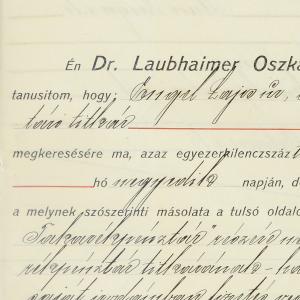 Én Dr. Laubhaimer Oszká
tanusítom, hogy: Engel Lajos úr,
tári titkár
megkeresésére ma, azaz egyezerkilenczszáz
hó negyedik napján, d
a melynek szószerinti másolata a tulsó oldalo
Takarékpénztár" részvé
rékpénztár titkárának - ha
saját irodámban